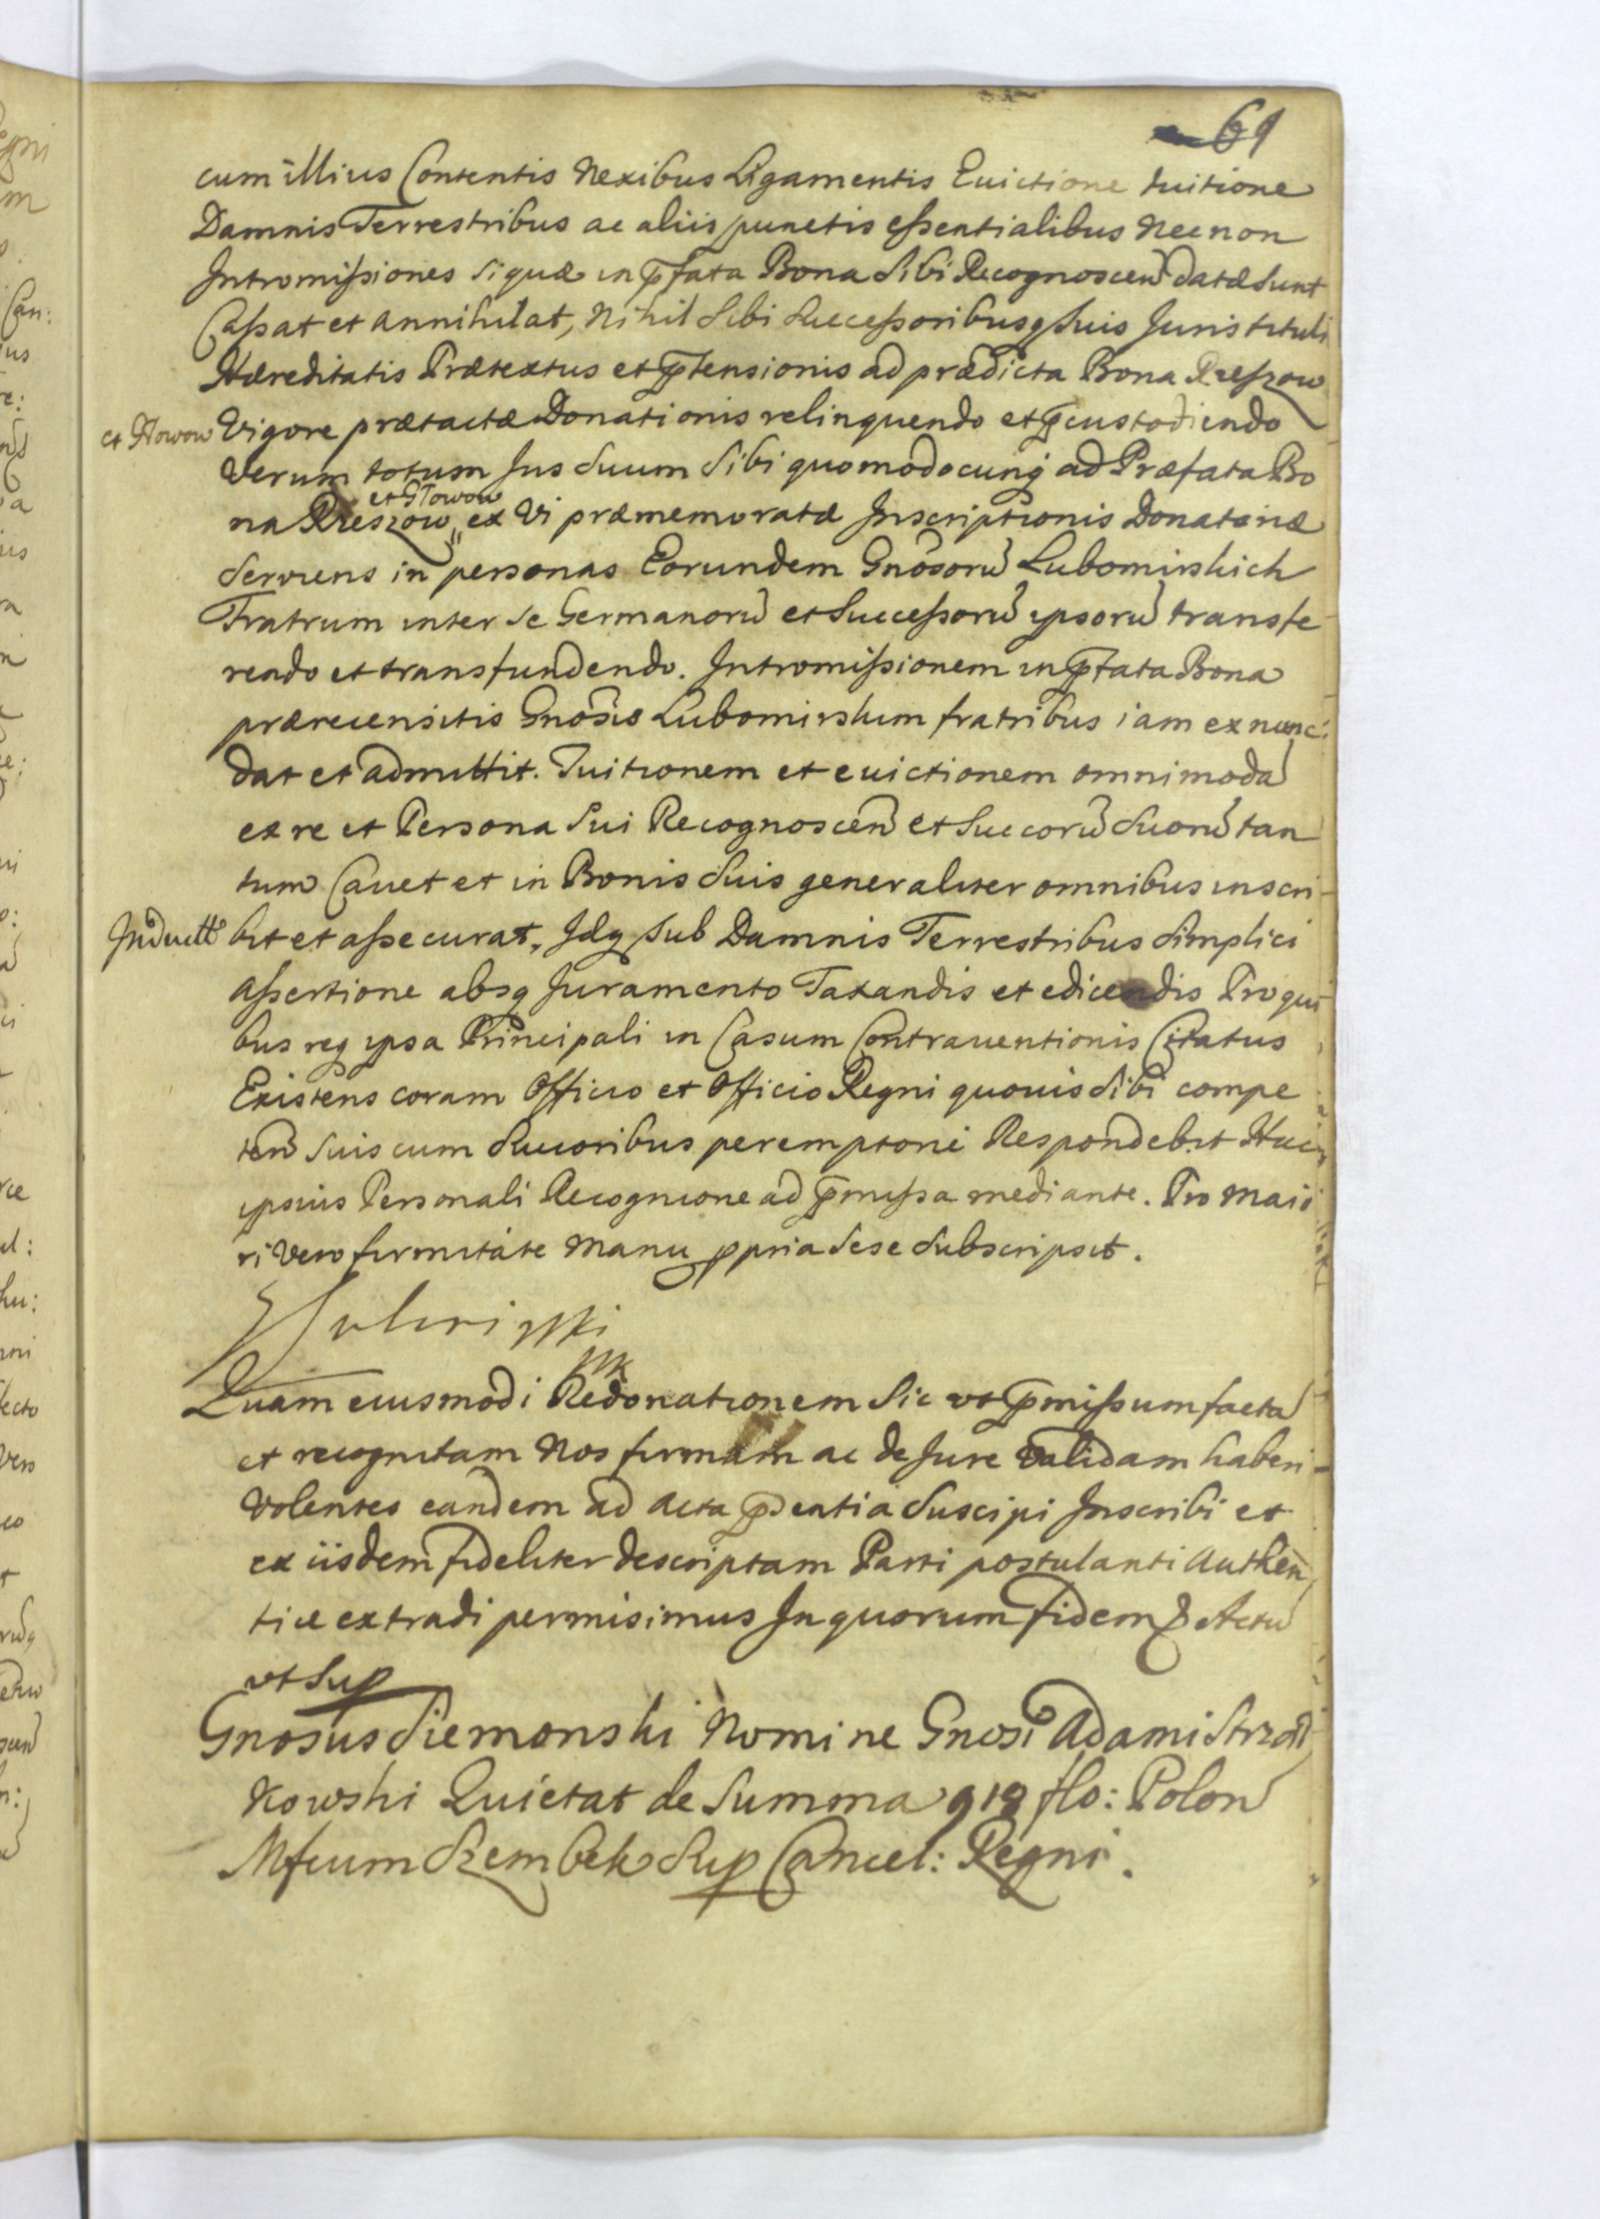 61
cum illius Contentis Nexibus Ligamentis Euictione tuitione
Damnis Terrestribus ac aliis punctis essentialibus Nec non
Intromissiones siquæ in p̄fata Bona Sibi Recognoscen̄ datæ sunt
Cassat et annihilat, Nihil Sibi Successoribusq suis Juris tituli
Hæreditatis Prætextus et p̄tensionis ad prædicta Bona Rzeszow
et Głowow Vigore prætactæ Donationis relinquendo et p̄custodiendo
Verum totum Jus Suum Sibi quomodocunq ad Præfata Bo
et Głowow
na Rzeszow ex Vi præmemoratæ Inscriptionis Donatoriæ
Serviens in personas Eorundem Gnosorū Lubomirskich
Fratrum inter se Germanorū et Successorū ipsorū transfe
rendo et transfundendo. Intromissionem in p̄fata Bona
prærecensitis Gnosis Lubomirskim fratribus iam ex nunc
dat et admittit. Tuitionem et euictionem omnimodā
ex re et Persona Sui Recognoscen̄ et Succorū Suorū tan
tum Cauet et in Bonis Suis generaliter omnibus inscri
bit et assecurat, Idq sub Damnis Terrestribus Simplici
Assertione absq Juramento Taxandis et edicendis Pro qui
bus req ipsa Principali in Casum Contrauentionis Citatus
Existens coram Officio et Officio Regni quouis Sibi compe
ten̄ Suis cum Succoribus peremptorie Respondebit Hac
ipsius Personali Recognicione ad p̄missa mediante. Pro maio
ri Vero firmitate Manu ppria sese Subscripsit.
mk
Quam eiusmodi Redonationem Sic vt p̄missum factā
et recognitam Nos firmam ac de Jure Validam haberi
Volentes eandem ad Acta p̄sentia Suscipi Inscribi et
ex iisdem fideliter descriptam Parti postulanti Authen
tice extradi permisimus In quorum fidem & Actū
vt Sup
Gnosus Siemonski Nomine Gnosi Adami Strzał
kowski Quietat de Summa 918 flo: Polon
Mfcum Szembek Sup Cancel: Regni.